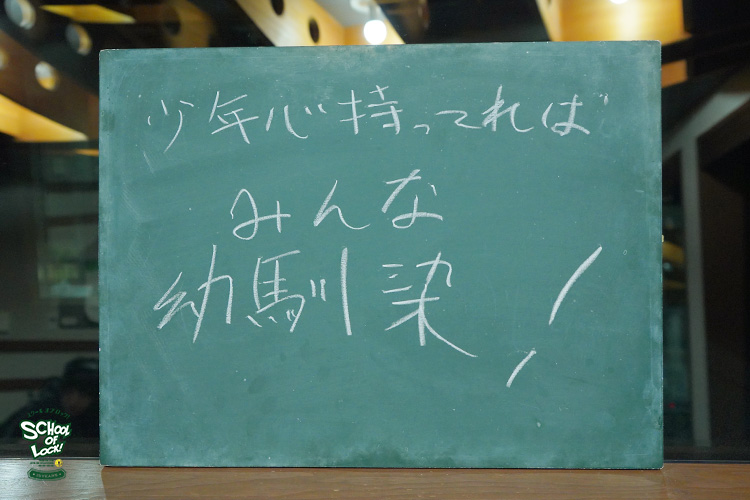 "少年心"持ってれば
みんな
幼馴染！
SCHOOL
OF
LOCK!